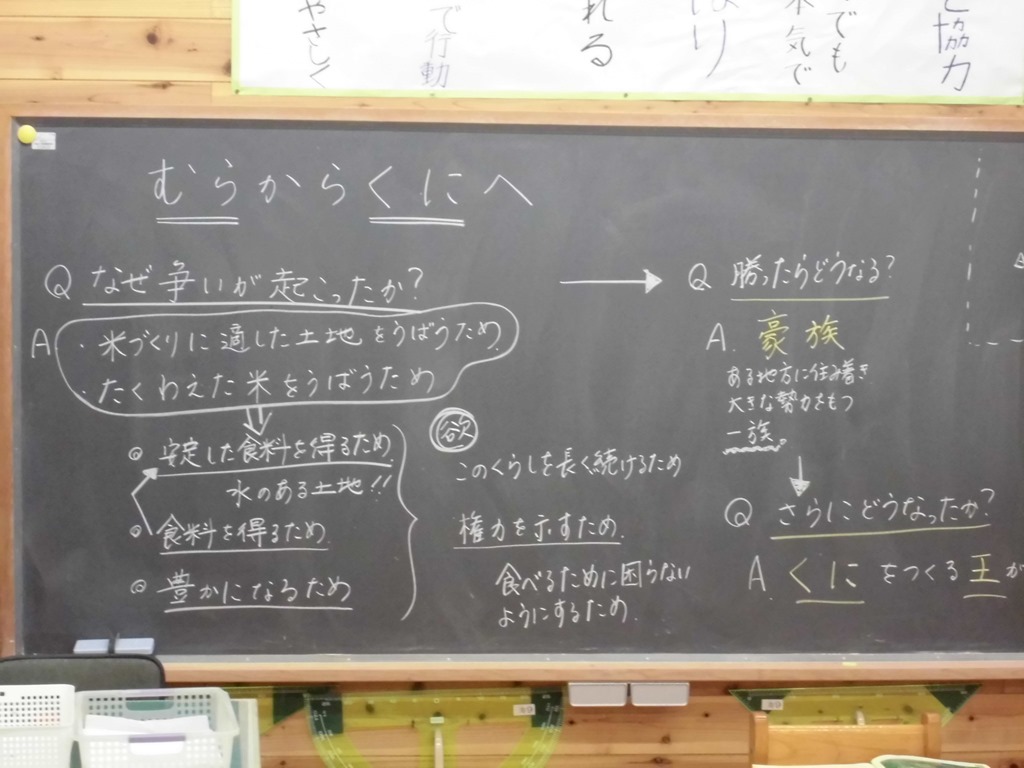 協力
でも
気で
れる
で行動
やさしく
むらからくにへ
Q なぜ争いが起こったか?
A ・米づくりに適した土地をうばうため
・たくわえた米をうばうため
◎ 安定した食料を得るため
水のある土地!!
◎ 食料を得るため
◎ 豊かになるため
欲
このくらしを長く続けるため
権力を示すため
食べるために困らない
ようにするため
Q 勝ったらどうなる?
A. 豪族
ある地方に住み着き
大きな勢力をもつ
一族。
Q さらにどうなったか?
A. くにをつくる王が